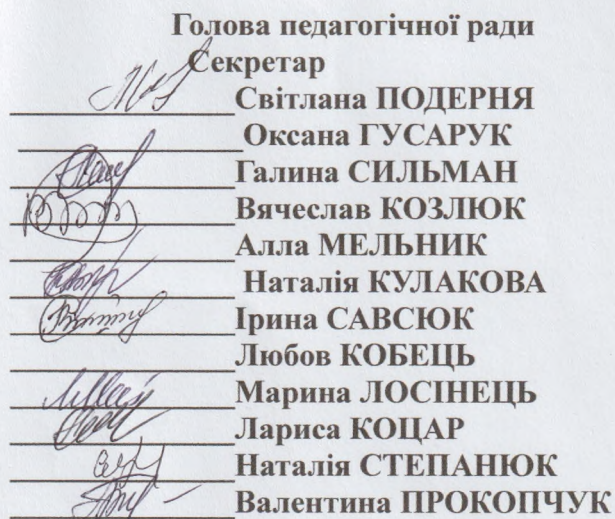 Голова педагогічної ради
Секретар
Світлана ПОДЕРНЯ
Оксана ГУСАРУК
Галина СИЛЬМАН
Вячеслав КОЗЛЮК
Алла МЕЛЬНИК
Наталія КУЛАКОВА
Ірина САВСЮК
Любов КОБЕЦЬ
Марина ЛОСІНЕЦЬ
Лариса КОЦАР
Наталія СТЕПАНЮК
Валентина ПРОКОПЧУК